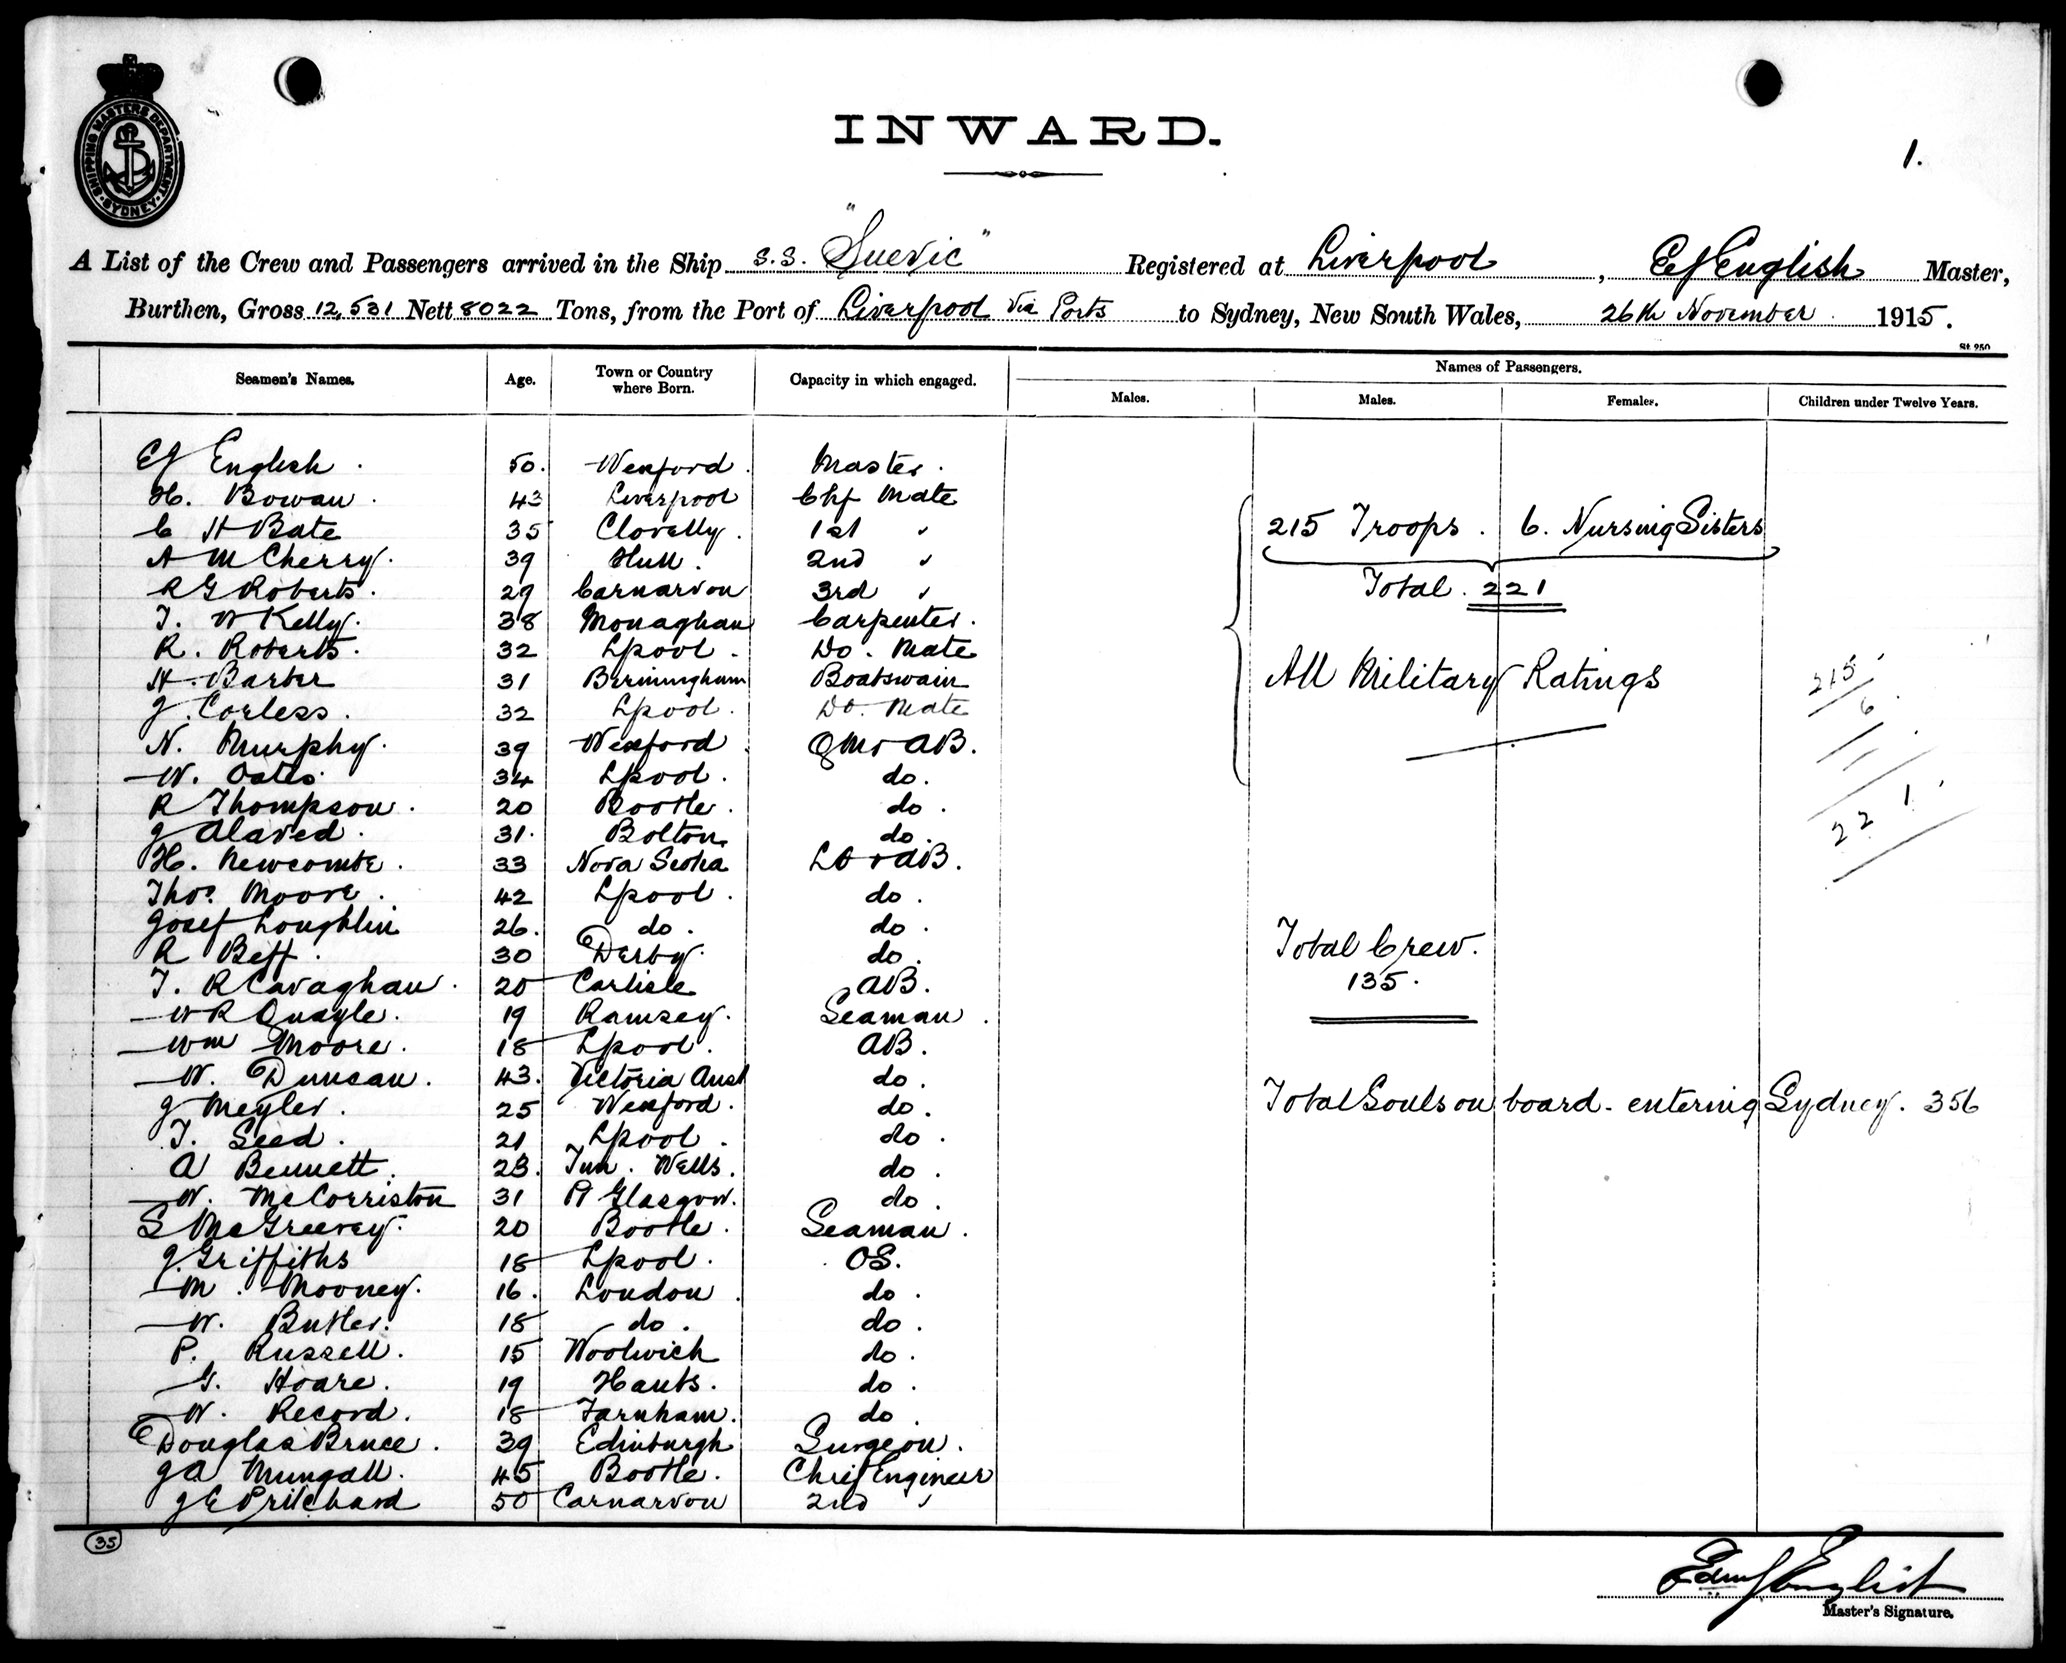 SHIPPING MASTERS DEPARTMENT
SYDNEY
INWARD.
1.
A List of the Crew and Passengers arrived in the Ship S.S. "Suevic" Registered at Liverpool, EJ English Master,
Burthen, Gross 12,531 Nett 8022 Tons, from the Port of Liverpool Via Ports to Sydney, New South Wales, 26th November 1915.
St. 250
Seamen's Names. Age. Town or Country where Born. Capacity in which engaged. Names of Passengers.
Males. Males. Females. Children under Twelve Years.
EJ English. 50. Wexford. Master.
H. Bowan. 43 Liverpool Chf Mate
C H Bate 35 Clovelly. 1st "
A McCherry. 39 Hull. 2nd "
R G Roberts. 29 Carnarvon 3rd "
T. W Kelly. 38 Monaghan Carpenter.
R. Roberts. 32 Lpool. Do. Mate
H. Barber 31 Birmingham Boatswain
J. Corless. 32 Lpool. Do. Mate
N. Murphy. 39 Wexford. QMr AB.
W. Oates. 34 Lpool. do.
R Thompson. 20 Bootle. do.
J 31. Bolton. do.
H. Newcombe. 33 Nova Scotia AB.
Thos. Moore. 42 Lpool. do.
Josef Loughlin 26. do. do.
R Beff. 30 Derby. do.
T. R Cavaghan. 20 Carlisle AB.
W R Quayle. 19 Ramsey. Seaman.
Wm Moore. 18 Lpool. AB.
W. Duncan. 43. Victoria Aust do.
J Meyler. 25 Wexford. do.
T. Seed. 21 Lpool. do.
A Bennett. 23. Tun. Wells. do.
W. McCorriston 31 Pt Glasgow. do.
S McGreevey. 20 Bootle. Seaman.
J. Griffiths 18 Lpool. OS.
M. Mooney. 16. London. do.
W. Butler. 18 do. do.
P. Russell. 15 Woolwich do.
G. Hoare. 19 Hants. do.
W. Record. 18 Farnham. do.
Douglas Bruce. 39 Edinburgh Surgeon.
J A Mungall. 45 Bootle. Chief Engineer
J E Pritchard 50 Carnarvon 2nd "
215 Troops. 6. Nursing Sisters
Total. 221
All Military Ratings
215
6
221
Total Crew.
135.
Total Souls on board entering Sydney. 356
35
English
Master's Signature.